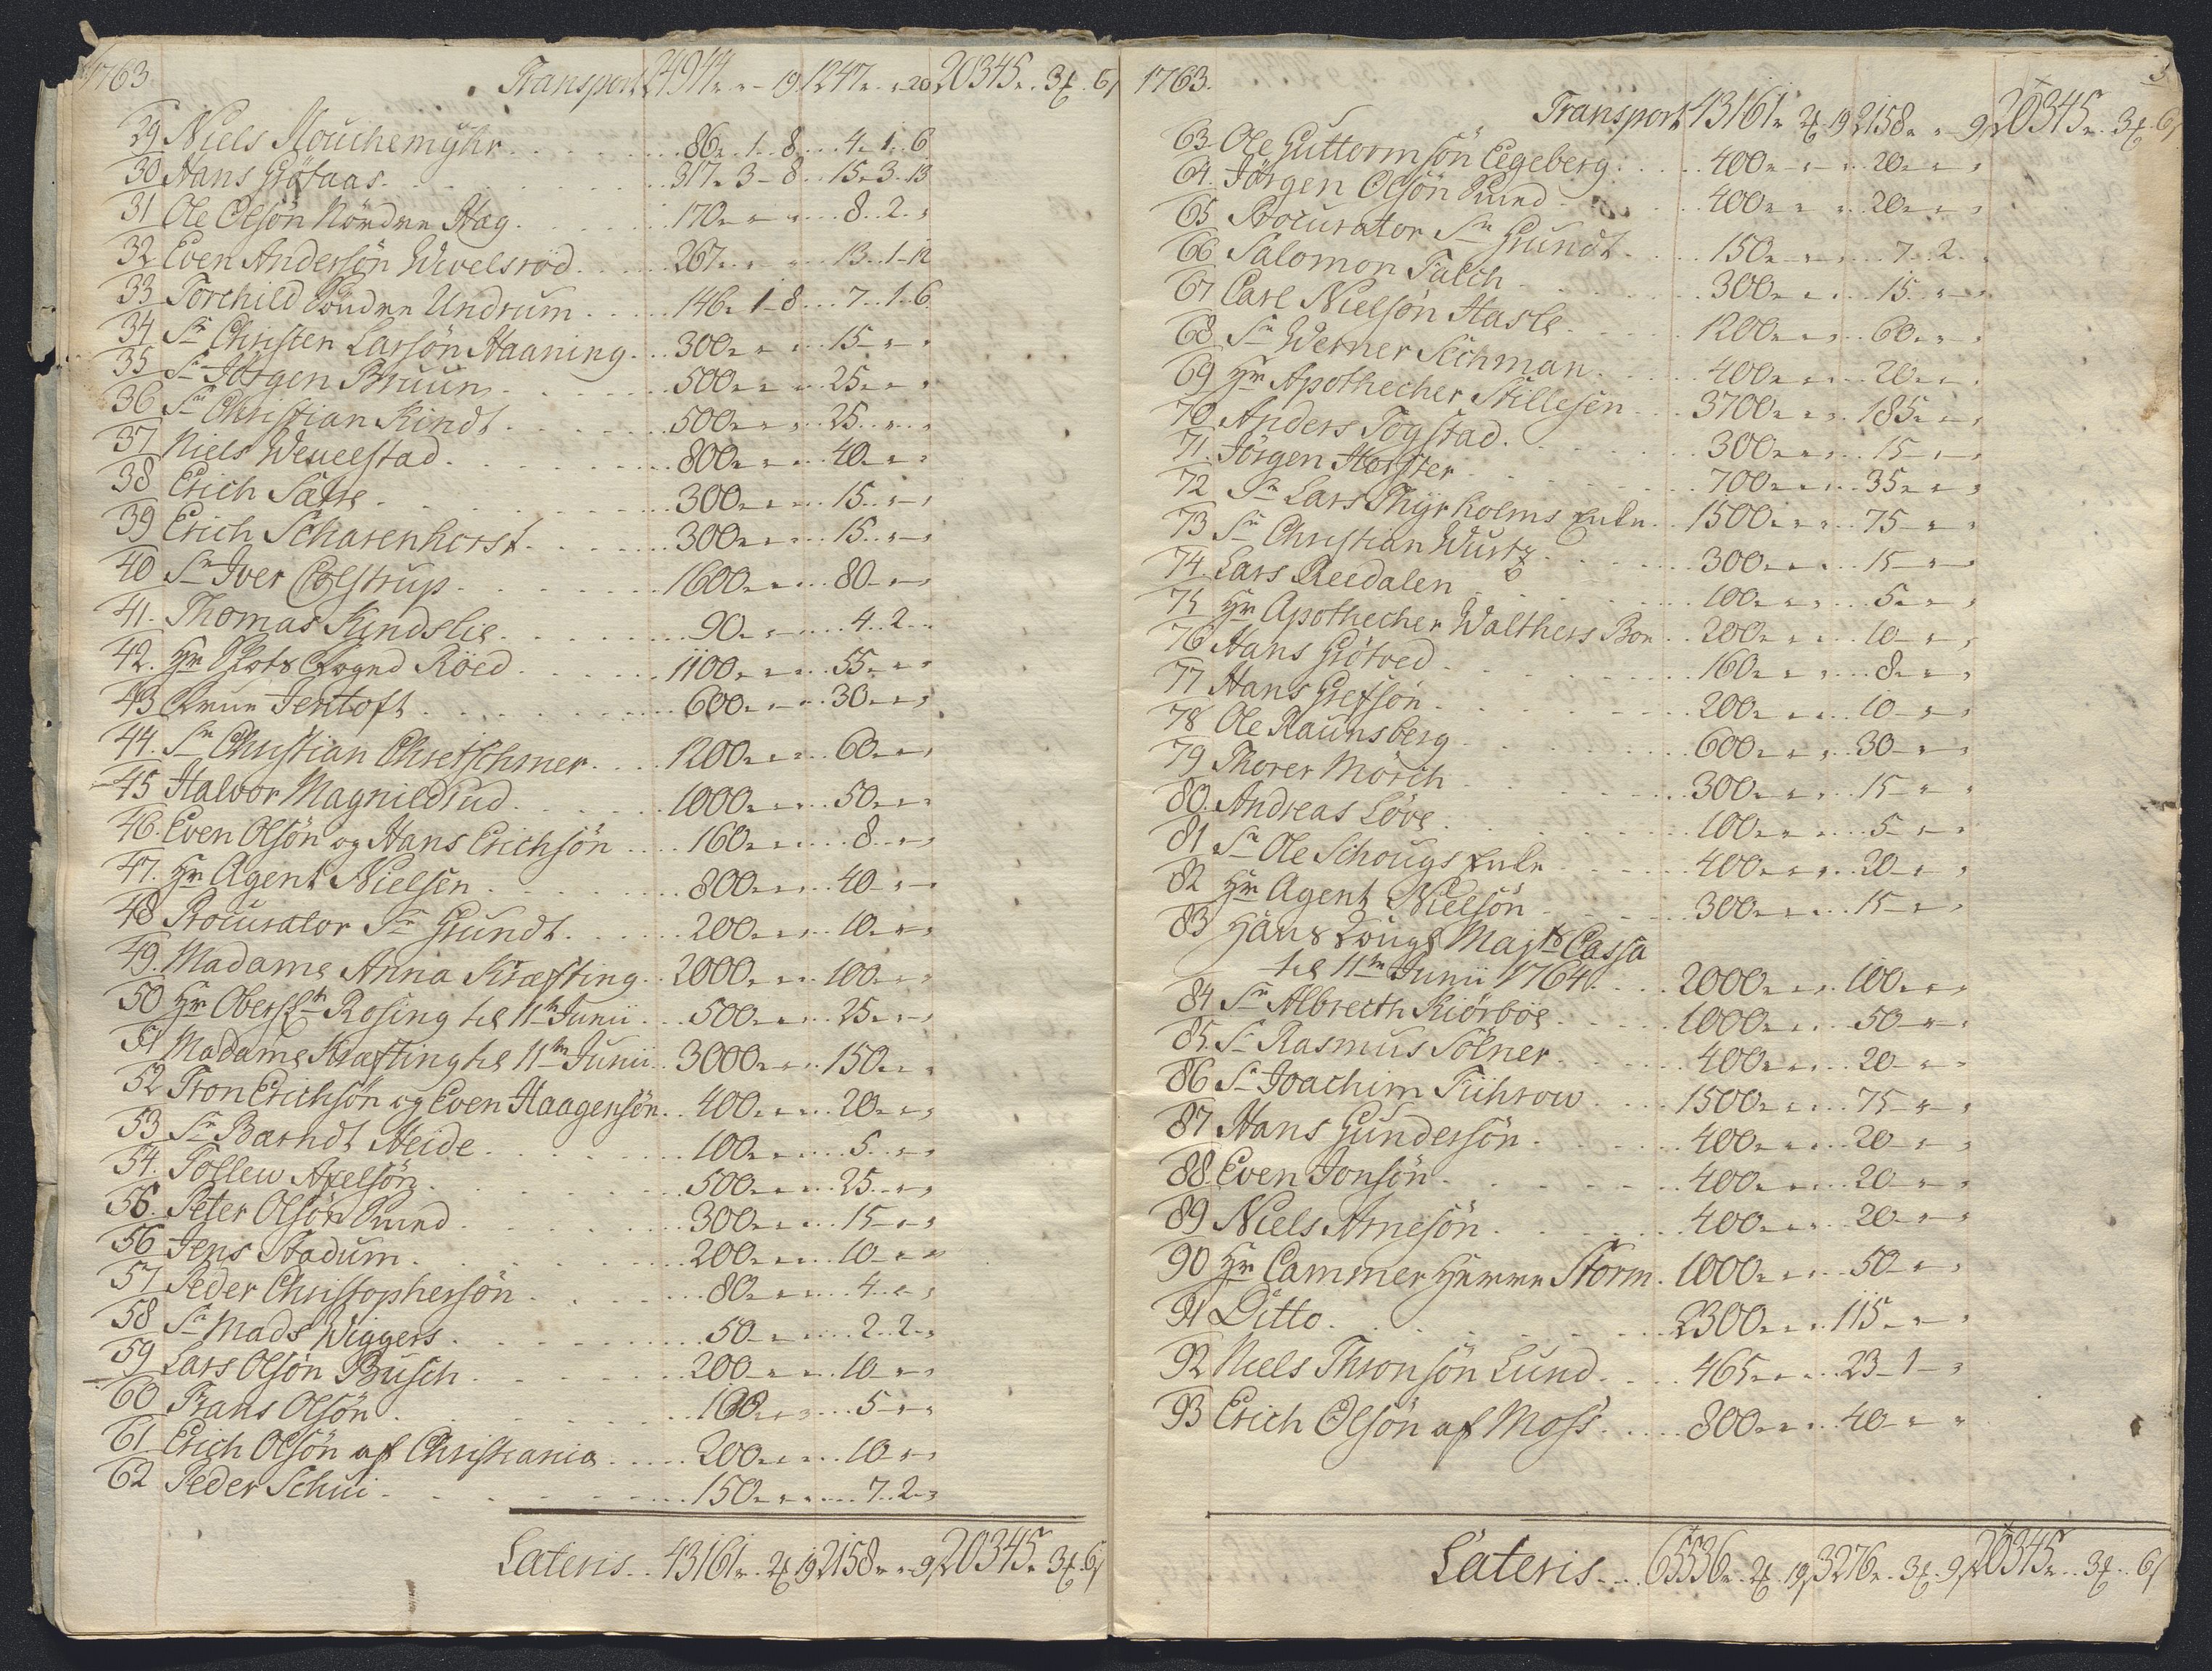 1763. Transport 24944 - - 19 1247 - - 20 20345 - 3 - 6
29 Niels Mouchemyhr 86 - 1 - 8 4 - 1 - 6
30 Hans Grötaas 317 - 3 - 8 15 - 3 - 13
31 Ole Olsön Nordre Hag 170 8 - 2 -
32 Even Andersön Wivelsröd 267 13 - 1 - 12
33 Torchild Søndre Undrum 146 - 1 - 8 7 - 1 - 6
34 Sr Christen Larsön Haaning 300 15
35 Sr Jörgen Bruun 500 25
36 Sr Christian Kindt 500 25
37 Niels Wevelstad 800 40
38 Erich Sætre 300 15
39 Erich Scharenhorst 300 15
40 Sr Iver Colstrup 1600 80
41. Thomas Kindslie 90 4 - 2
42. Hr Slots Fogd Röed 1100 55
43 Frue Jentoft 600 30
44. Sr Christian Chretschmer 1200 60
45 Halvor Magnildrud 1000 50
46. Even Olsön og Hans Erichsön 160 8
47. Hr Agent Nielsen 800 40
48 Procurator Sr Grundt 200 10
49. Madame Anna Kræfting 2000 100
50 Hr Oberstl Rosing til 11te Junii 500 25
51 Madame Kræfting til 11te Junii 3000 150
52 Tron Erichsön og Even Haagensön 400 20
53 Sr Barndt Heide 100 5
54. Tollew Axelsön 500 25
55. Peter Olsön Svend 300 15
56 Jens Stadum 200 10
57 Peder Christophersön 80 4
58 Sr Mads Wiggers 50 2 - 2
59 Lars Olsön Busch 200 10
60 Frans Olsön 100 5
61 Erich Olsön af Christiania 200 10
62 Peder Schui 150 7 - 2
Lateris 43161 - 2 - 19 2158 - - 9 20345 - 3 - 6
1763. Transport 43161 - 2 - 19 2158 - - 9 20345 - 3 - 6
63 Ole Guttormsön Eegeberg 400 20
64. Jörgen Olsön Svend 400 20
65 Procurator Sr Grundt 150 7 - 2
66 Salomon Falch 300 15
67 Carl Nielsön Hasle 1200 60
68 Sr Werner Sechman 400 20
69 Hr Apothecher Stillesen 3700 185
70 Anders Togstad 300 15
71. Jörgen Horster 700 35
72 Sr Lars Thyrholms Enke 1500 75
73 Sr Christian Wurtz 300 15
74. Lars Reedalen 100 5
75 Hr Apothecher Walthers Boe 200 10
76 Hans Grötved 160 8
77 Hans Grefsön 200 10
78 Ole Raunsberg 600 30
79 Thorer Mörch 300 15
80. Andreas Löve 100 5
81 Sr Ole Schougs Enke 400 20
82 Hr Agent Nielsön 300 15
83 Hans Kongl Majts Cassa
til 11te Junii 1764 2000 100
84 Sr Albrecth Kiörboe 1000 50
85. Sr Rasmus Sölner 400 20
86 Sr Joachim Führow 1500 75
87 Hans Gundersön 400 20
88. Even Jonsön 400 20
89 Niels Arnesön 400 20
90 Hr Cammer Herre Storm 1000 50
91 Ditto 2300 115
92 Niels Thronsön Lund 465 23 - 1
93 Erich Olsön af Moss 800 40
Lateris 65536 - 2 - 19 3276 - 3 - 9 20345 - 3 - 6